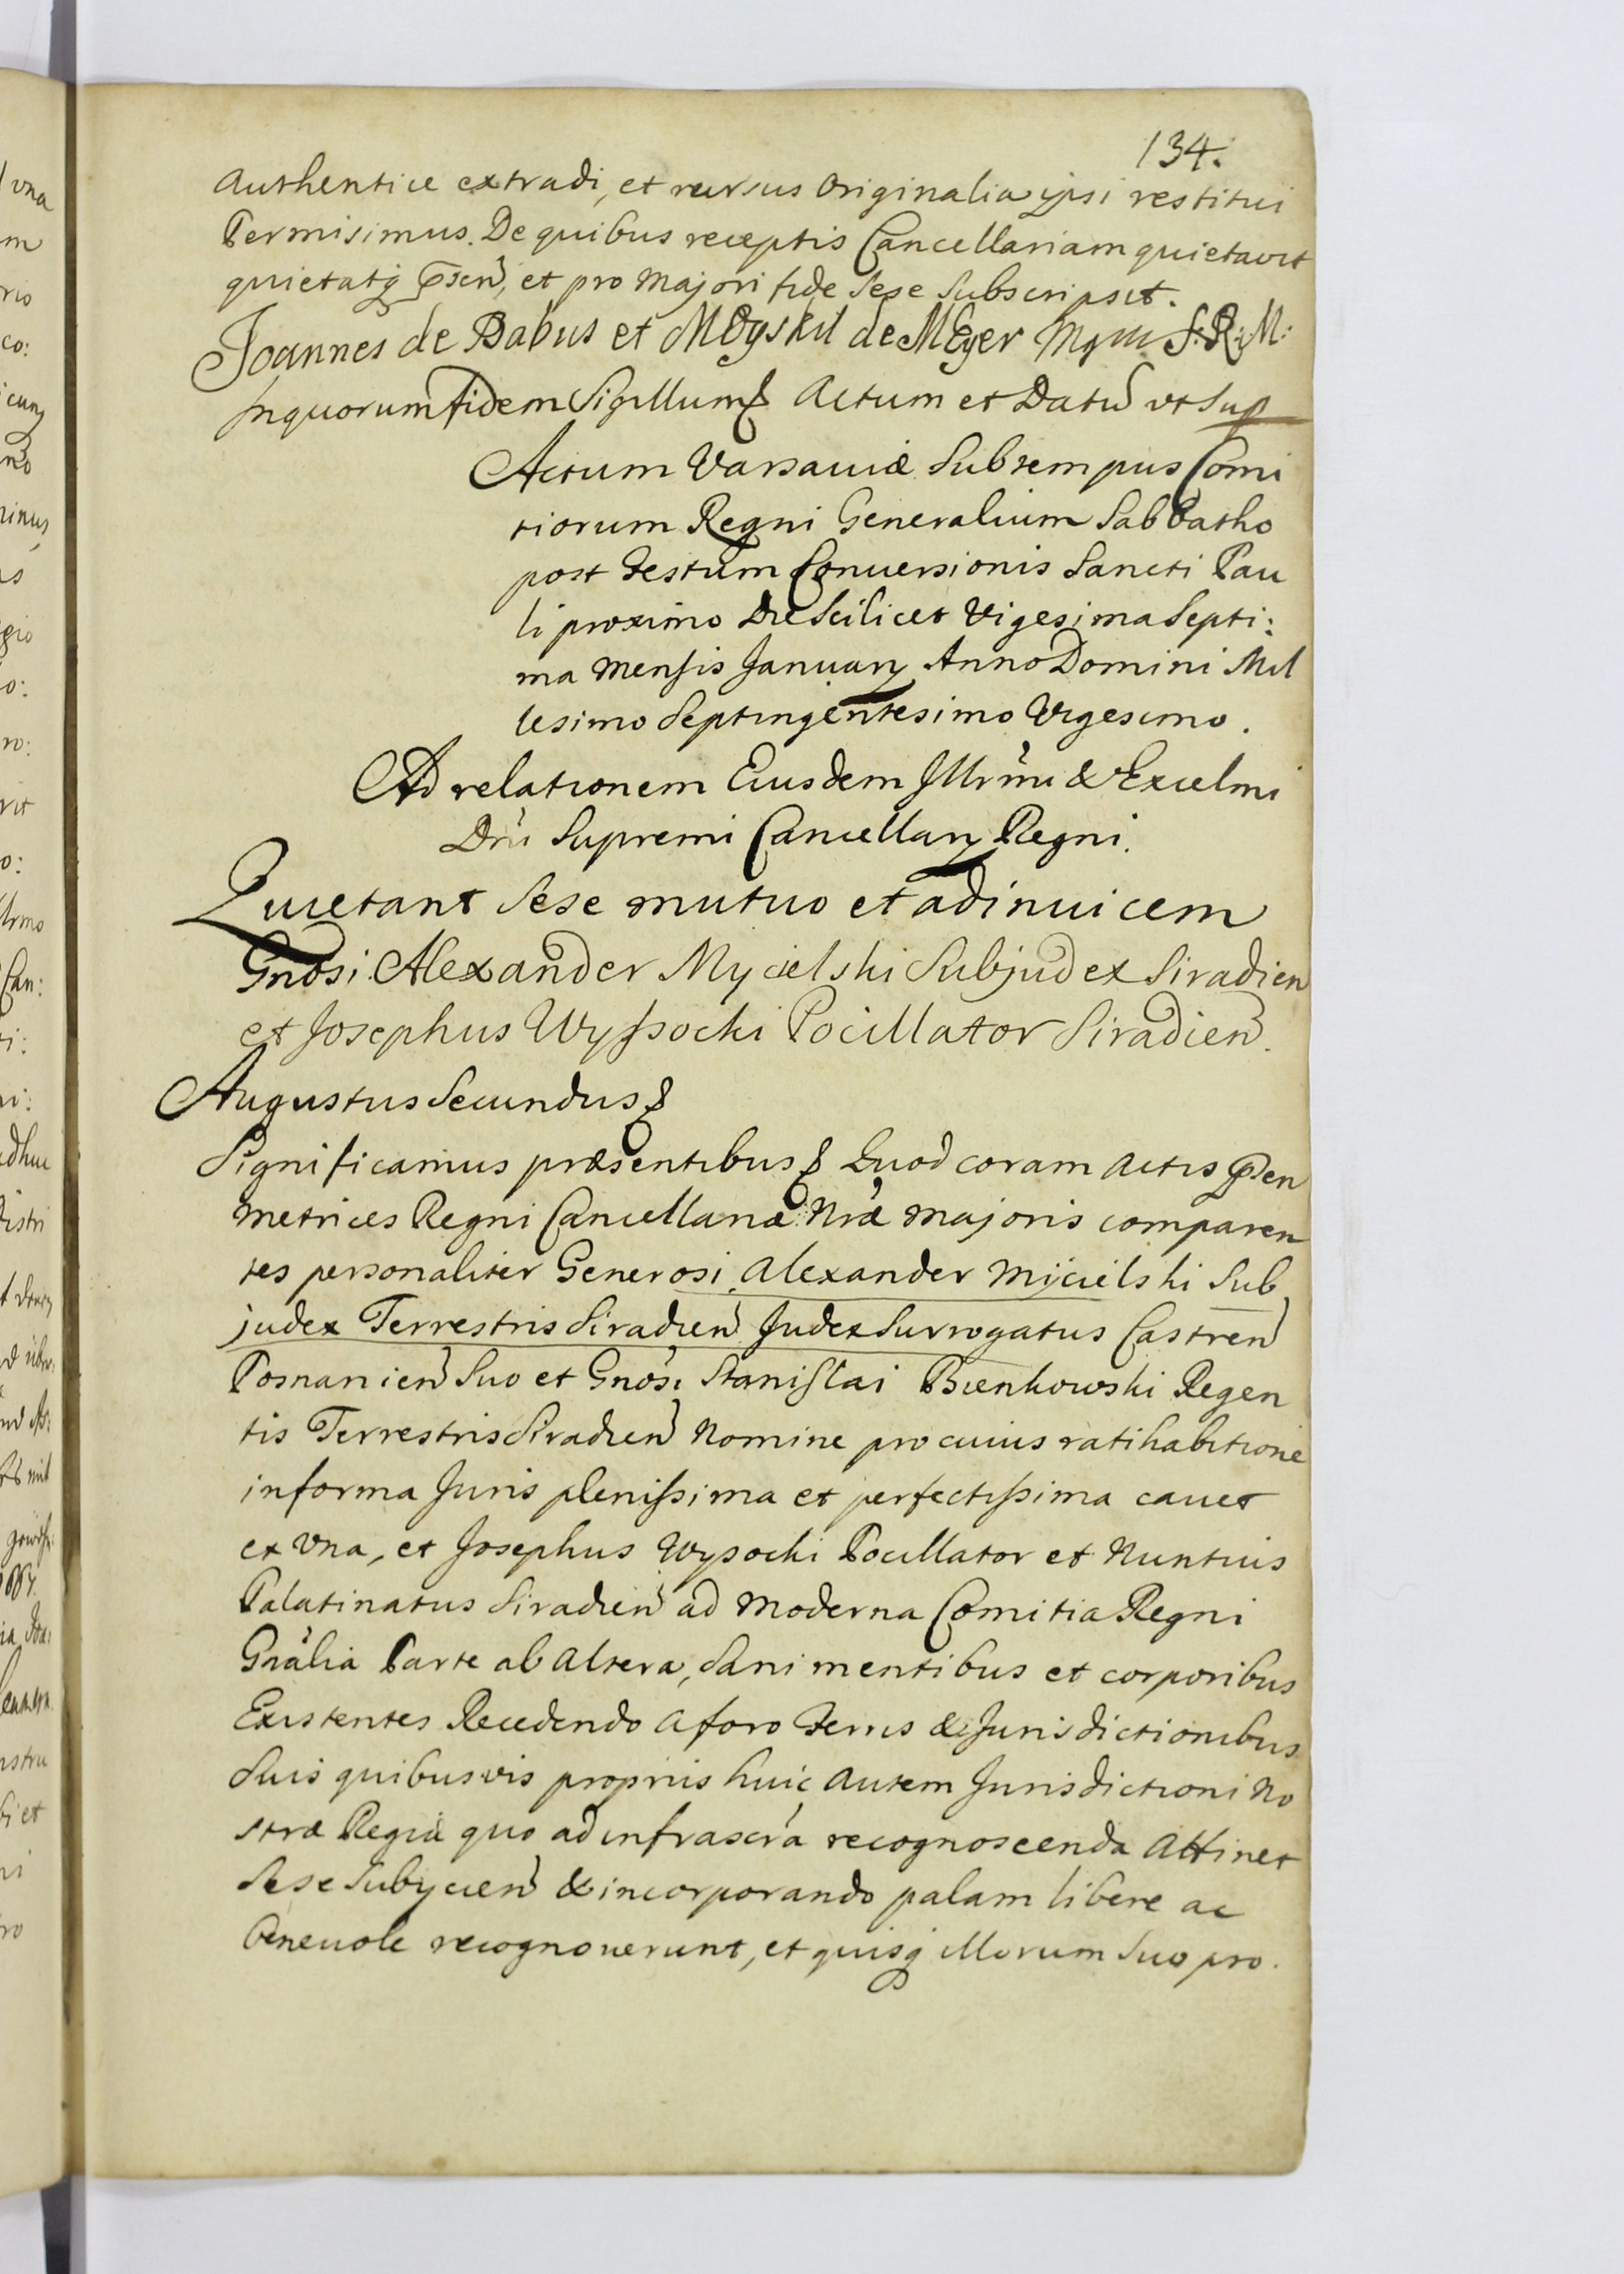 134.
Authentice extradi, et rursus Originalia ipsi restitui
Permisimus. De quibus receptis Cancellariam quietavit
quietatq₃ p̄sen, et pro Majori fide Sese Subscripsit.
Joannes de Babus et Moyskil de Meyer S: R: M:
In quorum fidem Sigillum & Actum et Datū vt Sup
Actum Varsauiæ Sub tempus Comi
tiorum Regni Generalium Sabbatho
post Festum Conuersionis Sancti Pau
li proximo Die Scilicet Vigesima Septi:
ma Mensis January Anno Domini Mil
lesimo Septingentesimo Vigesimo.
Ad relationem Eiusdem Illrmi & Excelmi
Dni Supremi Cancellary Regni.
Quietant Sese mutuo et adinuicem
Gnosi Alexander Mycielski Subjudex Siradien
et Josephus Wyssocki Pocillator Siradien.
Augustus Secundus &
Significamus præsentibus & Quod coram Actis p̄sen
Metrices Regni Cancellariæ Nræ Majoris comparen
tes personaliter Generosi Alexander Mÿcielski Sub
judex Terrestris Siradien Judex Surrogatus Castren
Posnanien Suo et Gnosi Stanislai Bienkowski Regen
tis Terrestris Siradien Nomine pro cuius ratihabitione
in forma Juris plenissima et perfectissima cauet
ex Vna, et Josephus Wysocki Pocillator et Nuntius
Palatinatus Siradien ad Moderna Comitia Regni
Gnalia Parte ab Altera, Sani mentibus et corporibus
Existentes Recedendo A foro Terris & Jurisdictionibus
Suis quibusvis proprijs huic Autem Jurisdictioni No
stræ Regiæ quo ad infrascra recognoscenda Attinet
Sese Subycien & incorporando palam libere ac
beneuole recognouerunt, et quisq₃ illorum Suo pro.